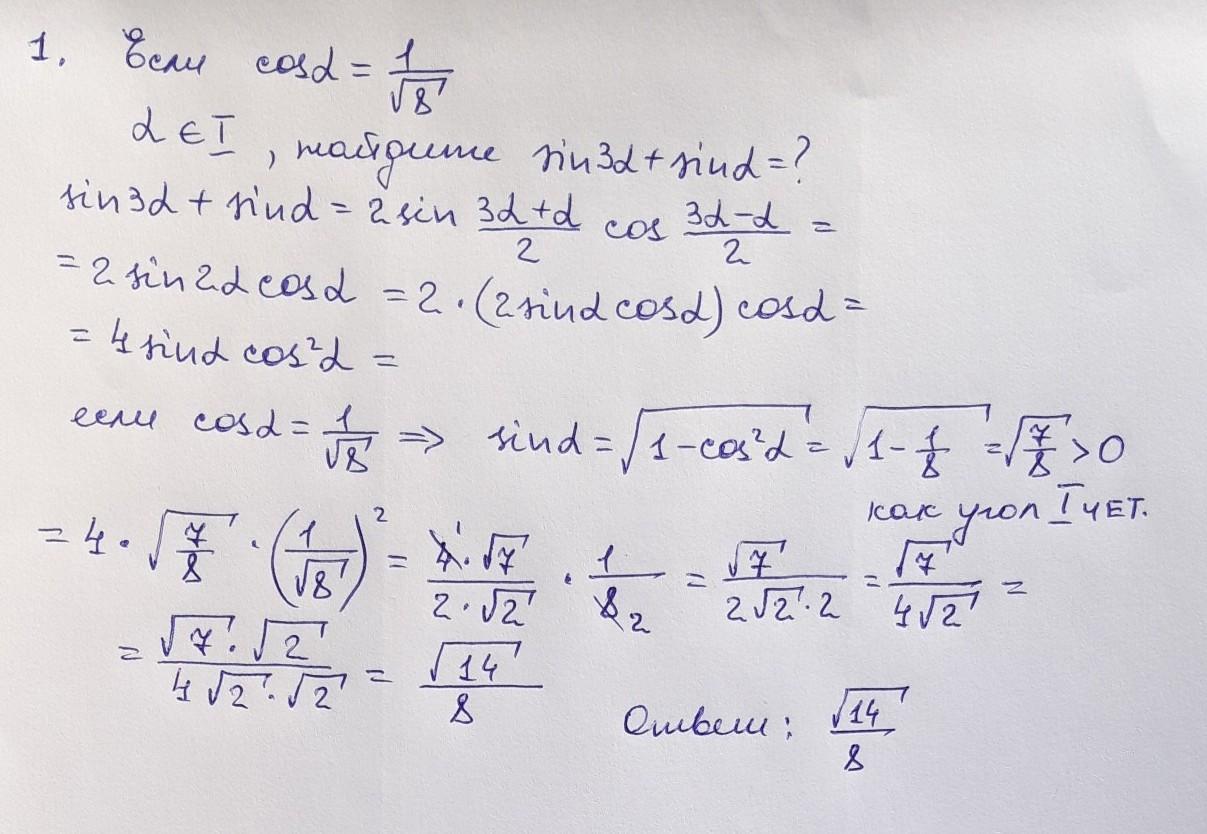 1. Если cosα = 1/√8
α ∈ I, найдите sin3α + sinα = ?
sin3α + sinα = 2 sin (3α+α)/2 cos (3α−α)/2 =
= 2 sin2α cosα = 2 · (2 sinα cosα) cosα =
= 4 sinα cos²α =
если cosα = 1/√8 ⇒ sinα = √(1−cos²α) = √(1−1/8) = √(7/8) > 0
как угол I чет.
= 4 · √(7/8) · (1/√8)² = (4¹ · √7)/(2 · √2) · 1/(8 2) = √7/(2√2 · 2) = √7/(4√2) =
= (√7 · √2)/(4√2 · √2) = √14/8
Ответ: √14/8